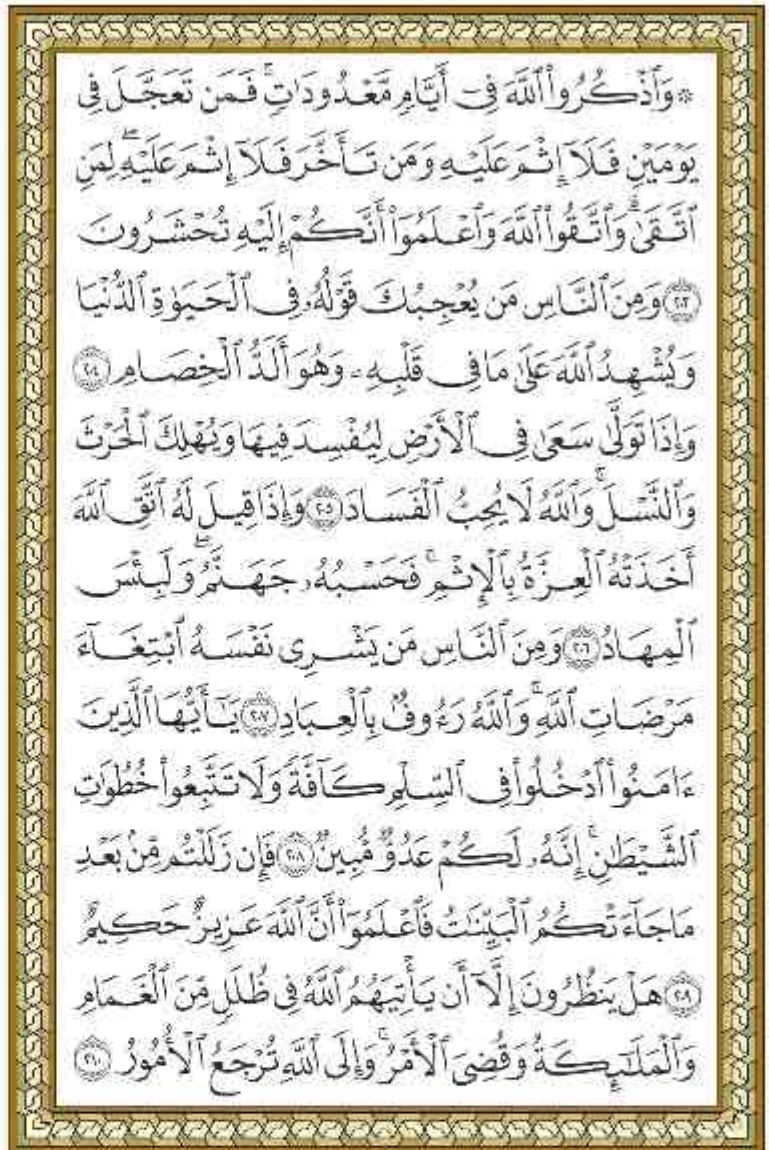 ۞ وَٱذْكُرُوا۟ ٱللَّهَ فِىٓ أَيَّامٍ مَّعْدُودَٰتٍۚ فَمَن تَعَجَّلَ فِى
يَوْمَيْنِ فَلَآ إِثْمَ عَلَيْهِ وَمَن تَأَخَّرَ فَلَآ إِثْمَ عَلَيْهِۖ لِمَنِ
ٱتَّقَىٰۗ وَٱتَّقُوا۟ ٱللَّهَ وَٱعْلَمُوٓا۟ أَنَّكُمْ إِلَيْهِ تُحْشَرُونَ
﴿٢٠٣﴾ وَمِنَ ٱلنَّاسِ مَن يُعْجِبُكَ قَوْلُهُۥ فِى ٱلْحَيَوٰةِ ٱلدُّنْيَا
وَيُشْهِدُ ٱللَّهَ عَلَىٰ مَا فِى قَلْبِهِۦ وَهُوَ أَلَدُّ ٱلْخِصَامِ ﴿٢٠٤﴾
وَإِذَا تَوَلَّىٰ سَعَىٰ فِى ٱلْأَرْضِ لِيُفْسِدَ فِيهَا وَيُهْلِكَ ٱلْحَرْثَ
وَٱلنَّسْلَۗ وَٱللَّهُ لَا يُحِبُّ ٱلْفَسَادَ ﴿٢٠٥﴾ وَإِذَا قِيلَ لَهُ ٱتَّقِ ٱللَّهَ
أَخَذَتْهُ ٱلْعِزَّةُ بِٱلْإِثْمِۚ فَحَسْبُهُۥ جَهَنَّمُۖ وَلَبِئْسَ
ٱلْمِهَادُ ﴿٢٠٦﴾ وَمِنَ ٱلنَّاسِ مَن يَشْرِى نَفْسَهُ ٱبْتِغَآءَ
مَرْضَاتِ ٱللَّهِۗ وَٱللَّهُ رَءُوفٌۢ بِٱلْعِبَادِ ﴿٢٠٧﴾ يَٰٓأَيُّهَا ٱلَّذِينَ
ءَامَنُوا۟ ٱدْخُلُوا۟ فِى ٱلسِّلْمِ كَآفَّةً وَلَا تَتَّبِعُوا۟ خُطُوَٰتِ
ٱلشَّيْطَٰنِۚ إِنَّهُۥ لَكُمْ عَدُوٌّ مُّبِينٌ ﴿٢٠٨﴾ فَإِن زَلَلْتُم مِّنۢ بَعْدِ
مَا جَآءَتْكُمُ ٱلْبَيِّنَٰتُ فَٱعْلَمُوٓا۟ أَنَّ ٱللَّهَ عَزِيزٌ حَكِيمٌ
﴿٢٠٩﴾ هَلْ يَنظُرُونَ إِلَّآ أَن يَأْتِيَهُمُ ٱللَّهُ فِى ظُلَلٍ مِّنَ ٱلْغَمَامِ
وَٱلْمَلَٰٓئِكَةُ وَقُضِىَ ٱلْأَمْرُۚ وَإِلَى ٱللَّهِ تُرْجَعُ ٱلْأُمُورُ ﴿٢١٠﴾